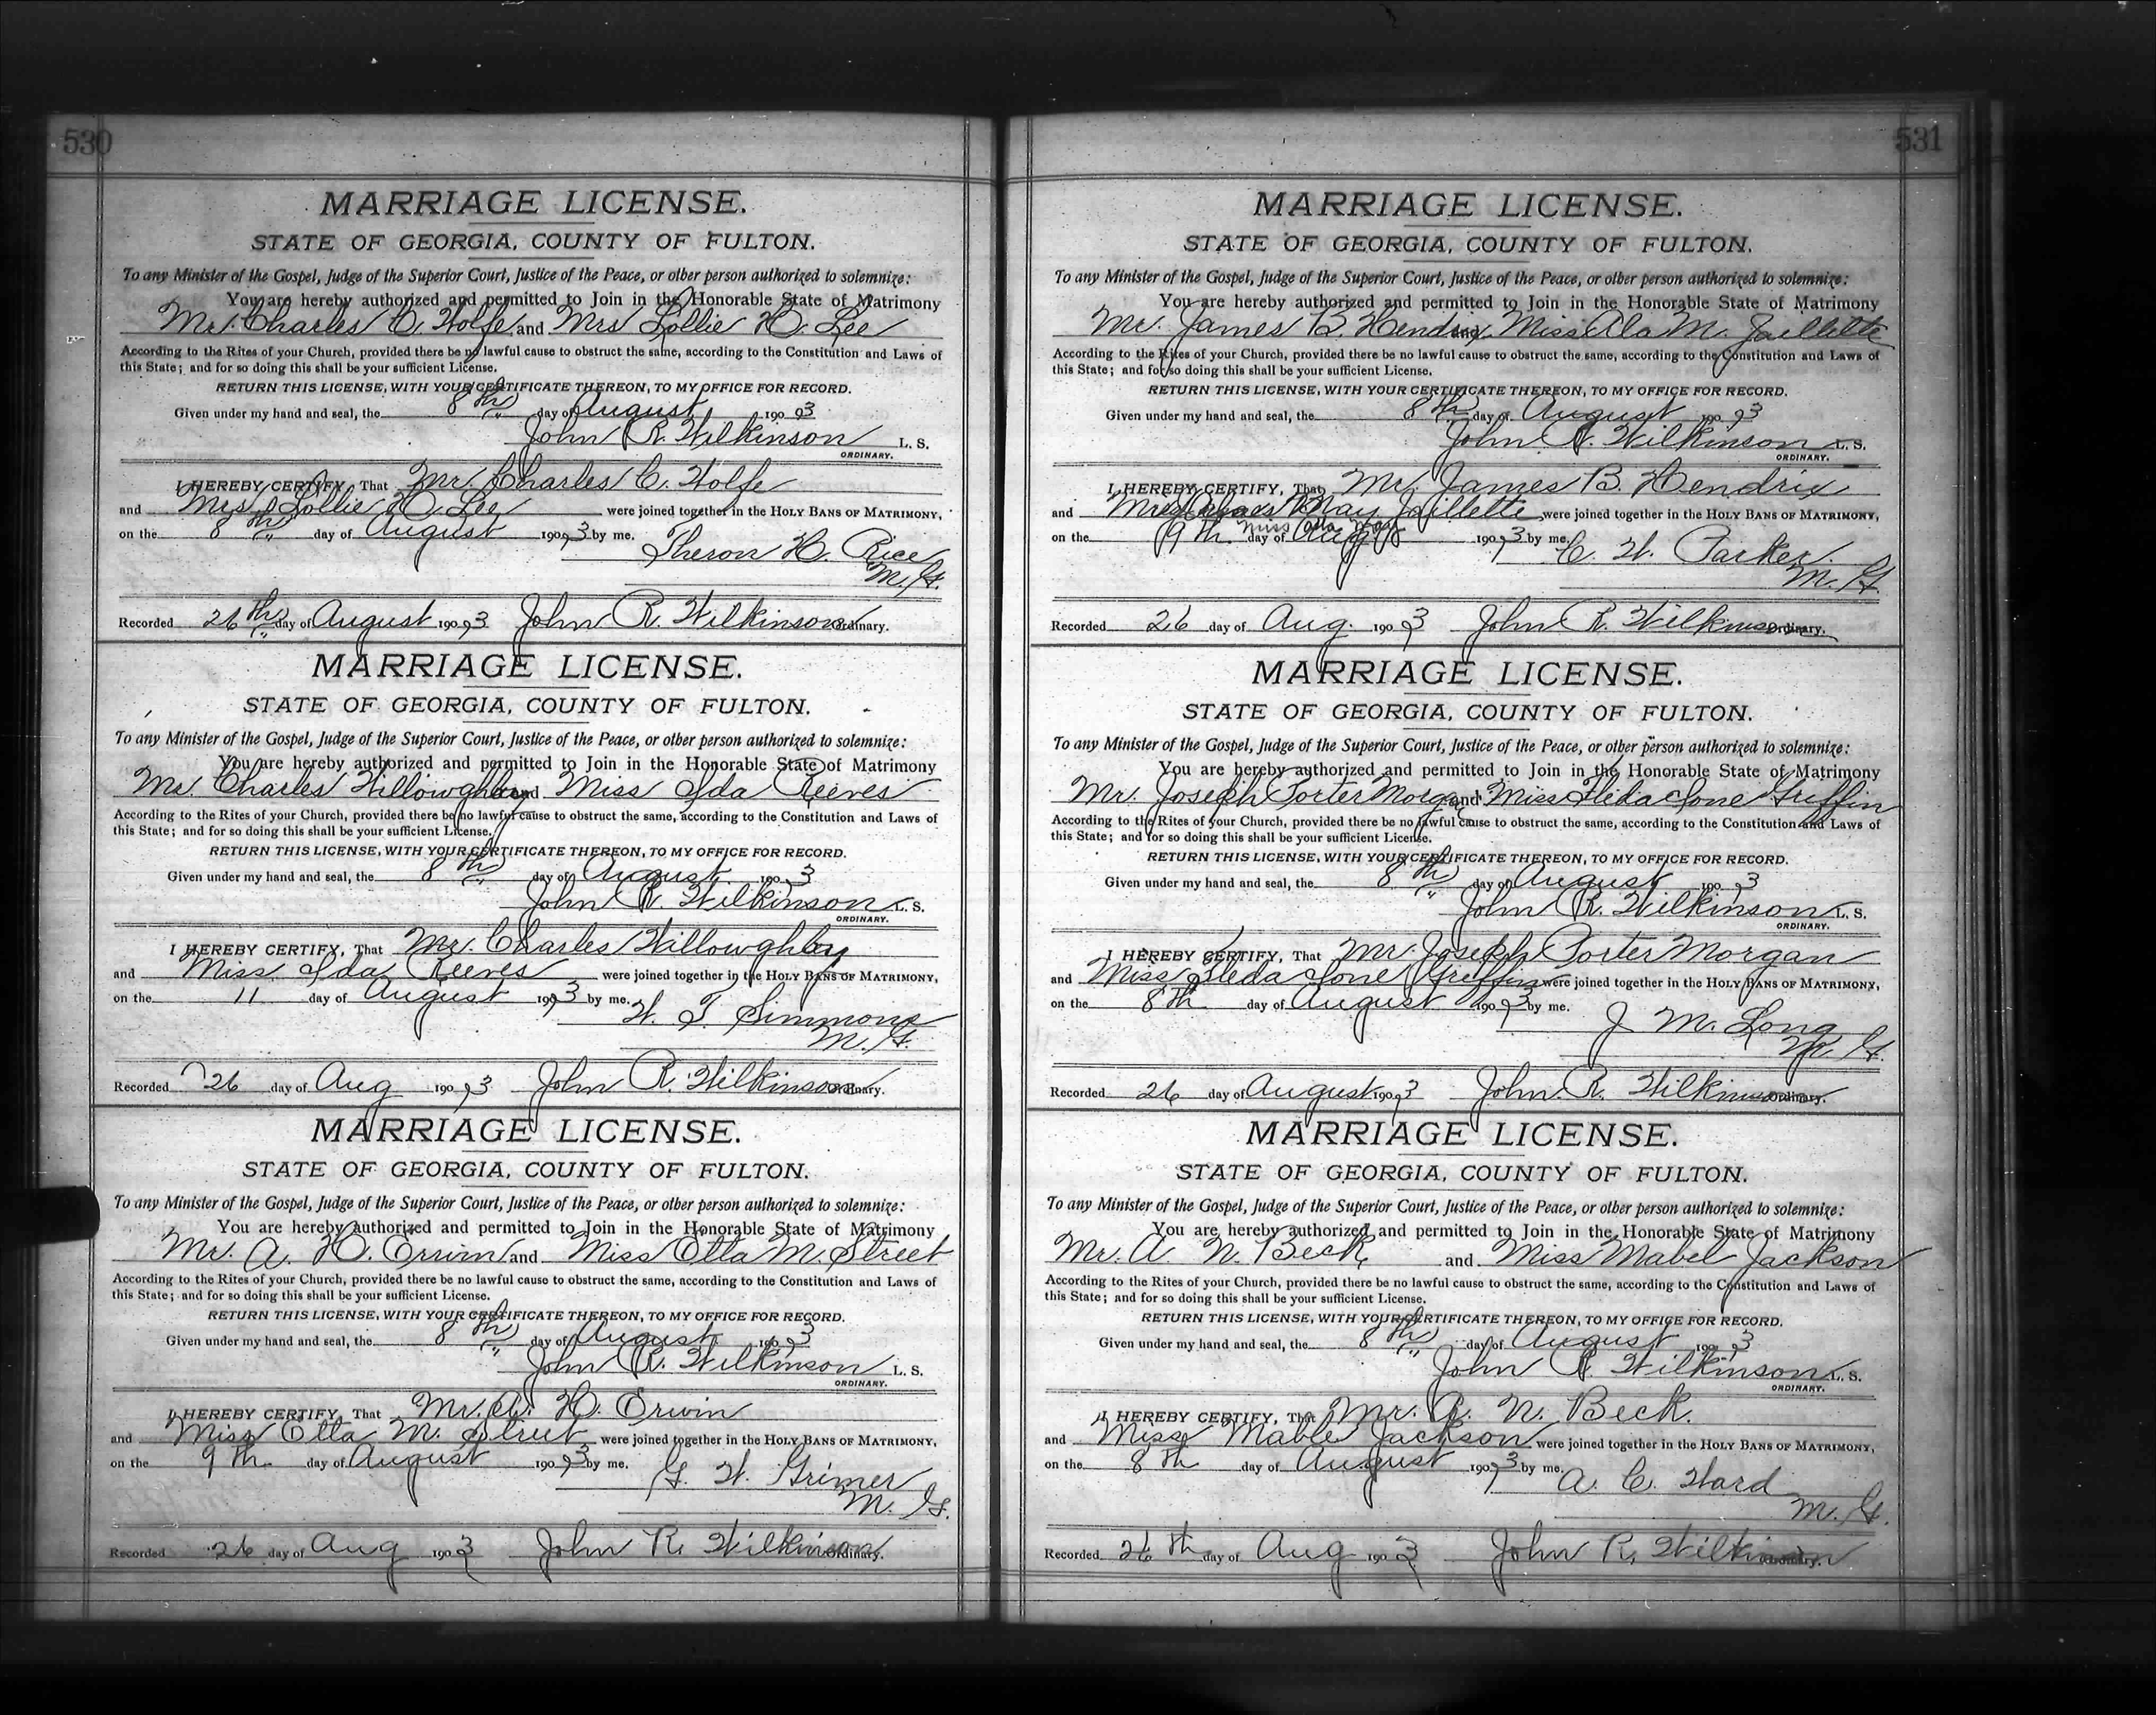 530
MARRIAGE LICENSE.
STATE OF GEORGIA, COUNTY OF FULTON.
To any Minister of the Gospel, Judge of the Superior Court, Justice of the Peace, or other person authorized to solemnize:
You are hereby authorized and permitted to Join in the Honorable State of Matrimony
Mr. Charles C. Wolfe and Mrs Lollie H. Lee
According to the Rites of your Church, provided there be no lawful cause to obstruct the same, according to the Constitution and Laws of
this State; and for so doing this shall be your sufficient License.
RETURN THIS LICENSE, WITH YOUR CERTIFICATE THEREON, TO MY OFFICE FOR RECORD.
Given under my hand and seal, the 8th day of August 190 3
John R. Wilkinson L. S.
ORDINARY.
I HEREBY CERTIFY, That Mr. Charles C. Wolfe
and Mrs Lollie H. Lee were joined together in the HOLY BANS OF MATRIMONY,
on the 8th day of August 190 3 by me.
Theron H. Rice
M. G.
Recorded 26th day of August 190 3 John R. Wilkinson Ordinary.
MARRIAGE LICENSE.
STATE OF GEORGIA, COUNTY OF FULTON.
To any Minister of the Gospel, Judge of the Superior Court, Justice of the Peace, or other person authorized to solemnize:
You are hereby authorized and permitted to Join in the Honorable State of Matrimony
Mr. Charles Willowghby and Miss Ida Reeves
According to the Rites of your Church, provided there be no lawful cause to obstruct the same, according to the Constitution and Laws of
this State; and for so doing this shall be your sufficient License.
RETURN THIS LICENSE, WITH YOUR CERTIFICATE THEREON, TO MY OFFICE FOR RECORD.
Given under my hand and seal, the 8th day of August 190 3
John R. Wilkinson L. S.
ORDINARY.
I HEREBY CERTIFY, That Mr. Charles Willowghby
and Miss Ida Reeves were joined together in the HOLY BANS OF MATRIMONY,
on the 11 day of August 190 3 by me.
W. T. Simmons
M. G.
Recorded 26 day of Aug 190 3 John R. Wilkinson Ordinary.
MARRIAGE LICENSE.
STATE OF GEORGIA, COUNTY OF FULTON.
To any Minister of the Gospel, Judge of the Superior Court, Justice of the Peace, or other person authorized to solemnize:
You are hereby authorized and permitted to Join in the Honorable State of Matrimony
Mr. A. H. Erwin and Miss Etta M. Street
According to the Rites of your Church, provided there be no lawful cause to obstruct the same, according to the Constitution and Laws of
this State; and for so doing this shall be your sufficient License.
RETURN THIS LICENSE, WITH YOUR CERTIFICATE THEREON, TO MY OFFICE FOR RECORD.
Given under my hand and seal, the 8th day of August 190 3
John R. Wilkinson L. S.
ORDINARY.
I HEREBY CERTIFY, That Mr. A. H. Erwin
and Miss Etta M. Street were joined together in the HOLY BANS OF MATRIMONY,
on the 9th day of August 190 3 by me.
G. W. Grimer
M. G.
Recorded 26 day of Aug 190 3 John R. Wilkinson Ordinary.
531
MARRIAGE LICENSE.
STATE OF GEORGIA, COUNTY OF FULTON.
To any Minister of the Gospel, Judge of the Superior Court, Justice of the Peace, or other person authorized to solemnize:
You are hereby authorized and permitted to Join in the Honorable State of Matrimony
Mr. James B. Hendrix and Miss Ala M. Jaillette
According to the Rites of your Church, provided there be no lawful cause to obstruct the same, according to the Constitution and Laws of
this State; and for so doing this shall be your sufficient License.
RETURN THIS LICENSE, WITH YOUR CERTIFICATE THEREON, TO MY OFFICE FOR RECORD.
Given under my hand and seal, the 8th day of August 190 3
John R. Wilkinson L. S.
ORDINARY.
I HEREBY CERTIFY, That Mr. James B. Hendrix
and May Jaillette were joined together in the HOLY BANS OF MATRIMONY,
Miss Alla May
on the 9th day of Aug 190 3 by me.
C. W. Parker
M. G.
Recorded 26 day of Aug. 190 3 John R. Wilkinson Ordinary.
MARRIAGE LICENSE.
STATE OF GEORGIA, COUNTY OF FULTON.
To any Minister of the Gospel, Judge of the Superior Court, Justice of the Peace, or other person authorized to solemnize:
You are hereby authorized and permitted to Join in the Honorable State of Matrimony
Mr. Joseph Porter Morgan and Miss Fleda Ione Griffin
According to the Rites of your Church, provided there be no lawful cause to obstruct the same, according to the Constitution and Laws of
this State; and for so doing this shall be your sufficient License.
RETURN THIS LICENSE, WITH YOUR CERTIFICATE THEREON, TO MY OFFICE FOR RECORD.
Given under my hand and seal, the 8th day of August 190 3
John R. Wilkinson L. S.
ORDINARY.
I HEREBY CERTIFY, That Mr. Joseph Porter Morgan
and Miss Fleda Ione Griffin were joined together in the HOLY BANS OF MATRIMONY,
on the 8th day of August 190 3 by me.
J M. Long
M. G.
Recorded 26 day of August 190 3 John. R. Wilkinson Ordinary.
MARRIAGE LICENSE.
STATE OF GEORGIA, COUNTY OF FULTON.
To any Minister of the Gospel, Judge of the Superior Court, Justice of the Peace, or other person authorized to solemnize:
You are hereby authorized and permitted to Join in the Honorable State of Matrimony
Mr. A. N. Beck and Miss Mabel Jackson
According to the Rites of your Church, provided there be no lawful cause to obstruct the same, according to the Constitution and Laws of
this State; and for so doing this shall be your sufficient License.
RETURN THIS LICENSE, WITH YOUR CERTIFICATE THEREON, TO MY OFFICE FOR RECORD.
Given under my hand and seal, the 8th day of August 190 3
John R. Wilkinson L. S.
ORDINARY.
I HEREBY CERTIFY, That Mr. A. N. Beck.
and Miss Mable Jackson were joined together in the HOLY BANS OF MATRIMONY,
on the 8th day of August 190 3 by me.
A. C. Ward
M. G.
Recorded 26th day of Aug 190 3 John R. Wilkinson Ordinary.